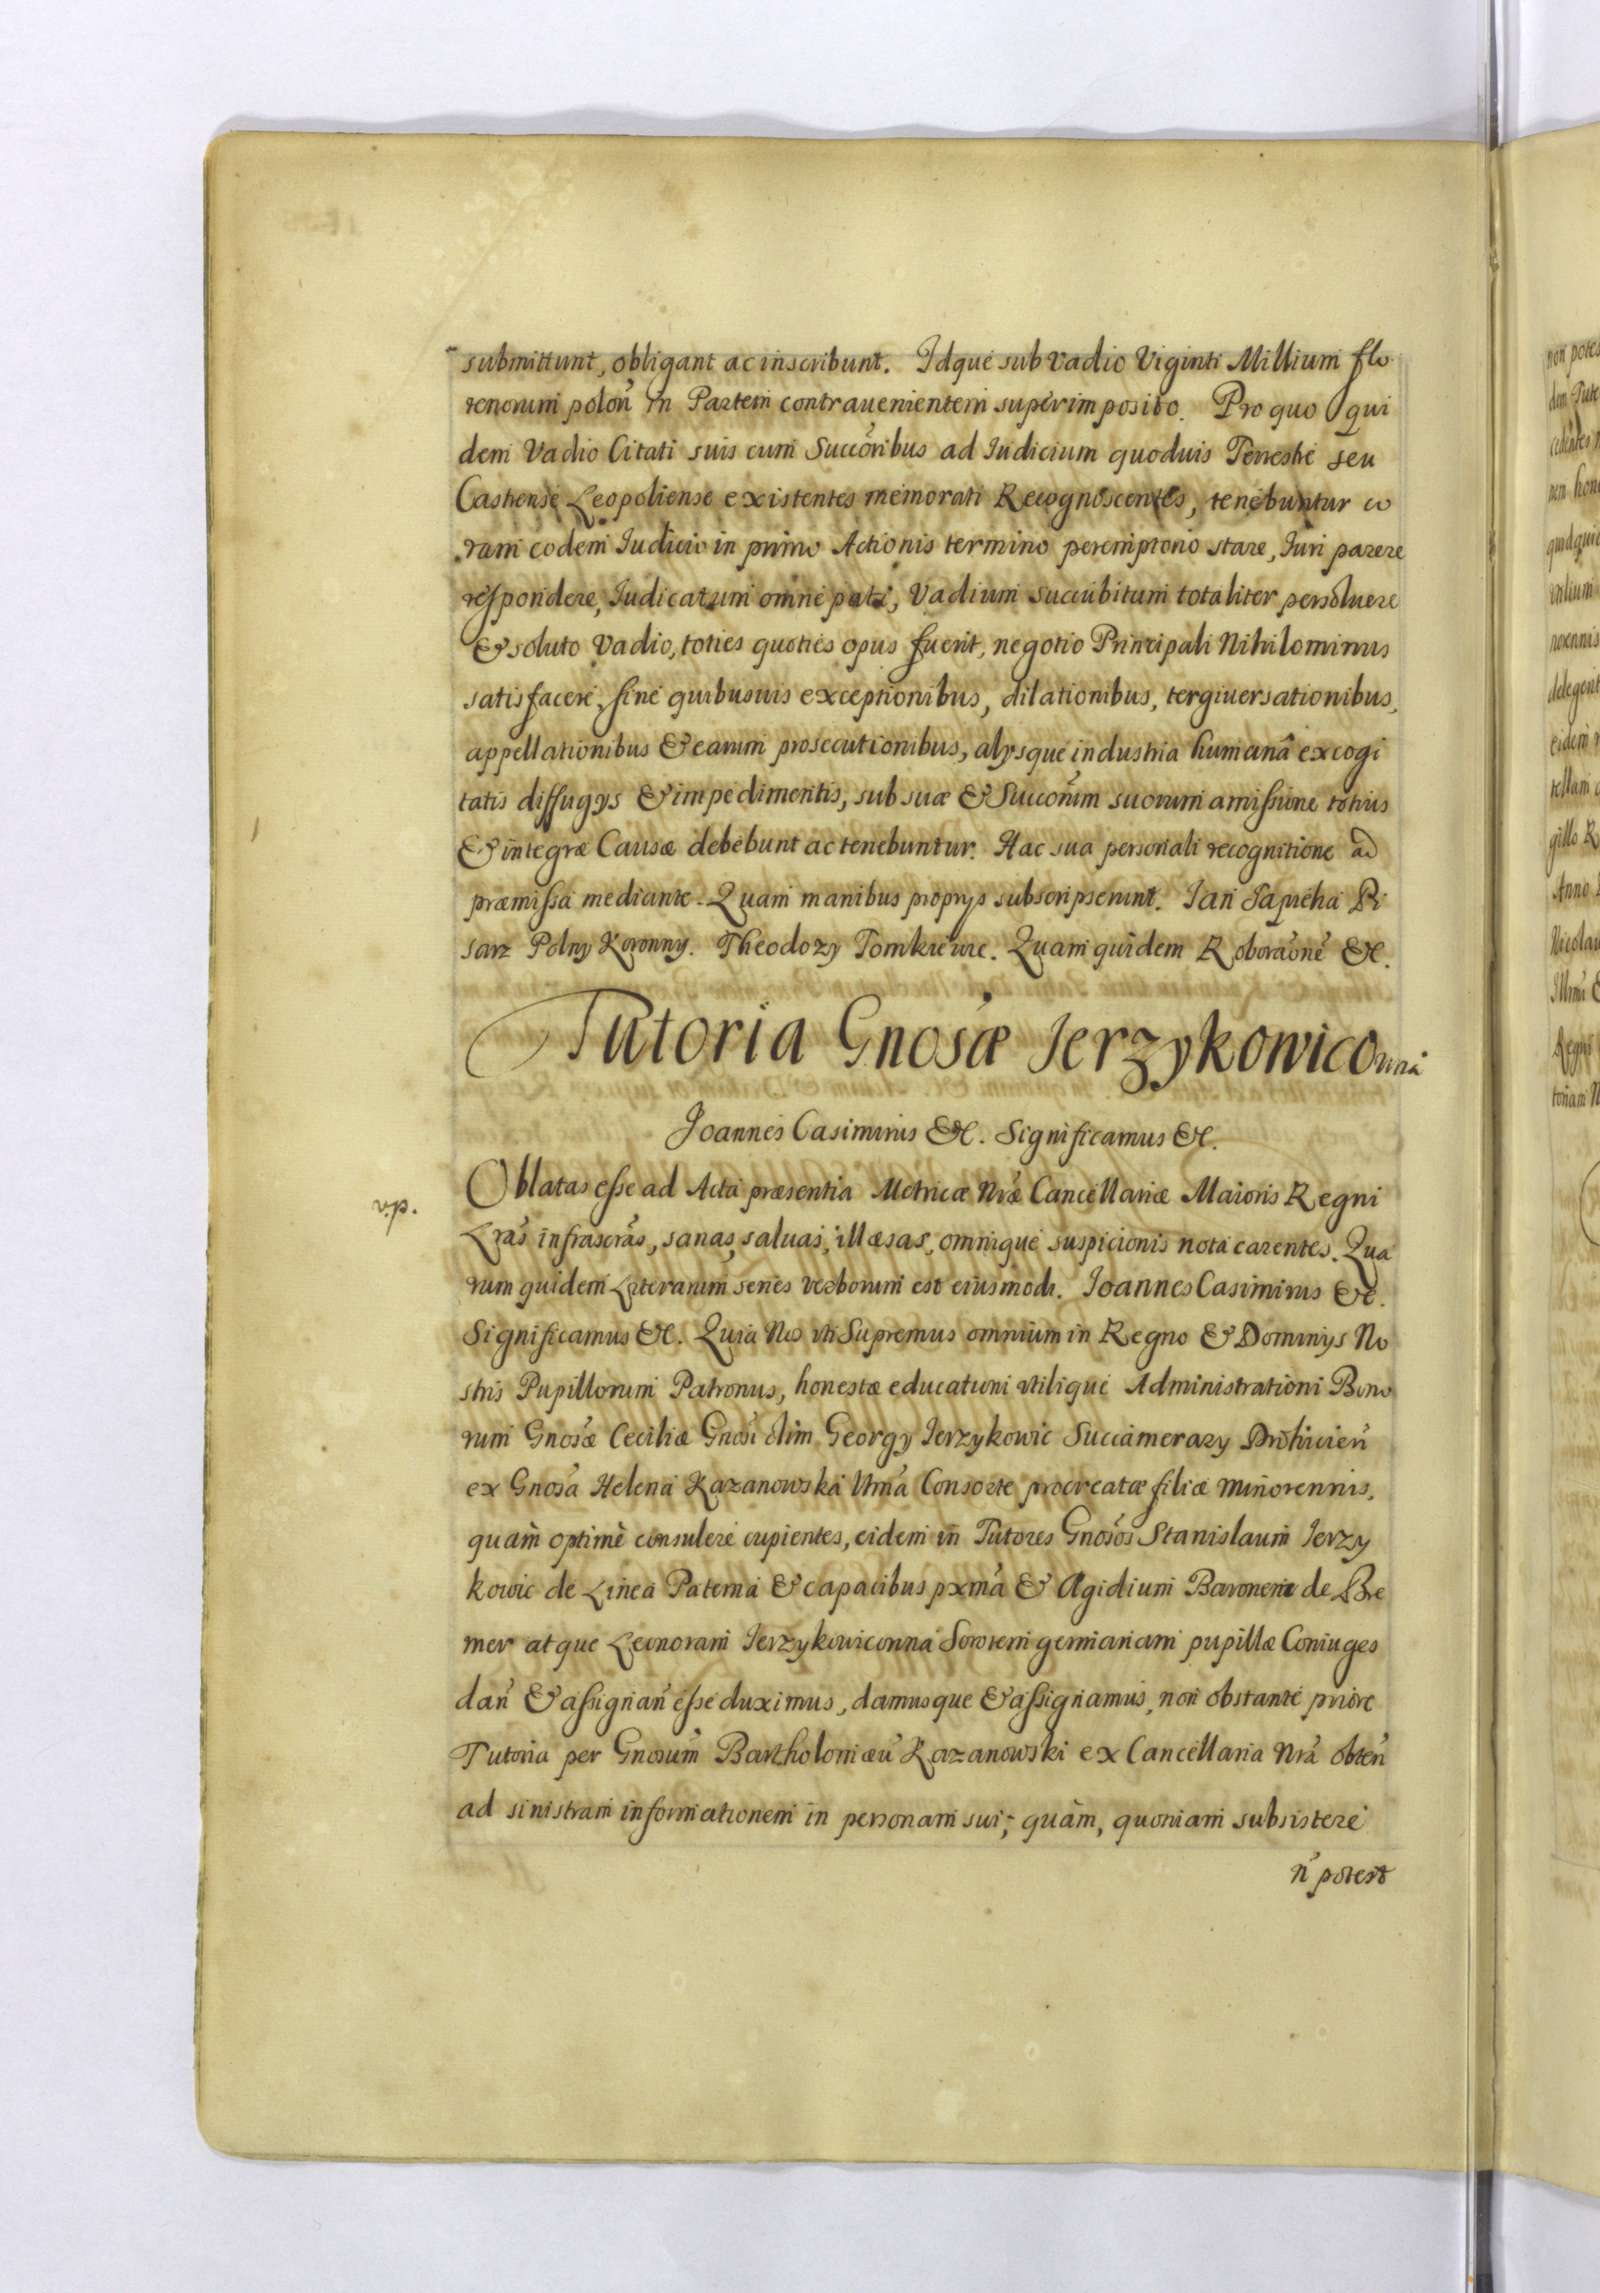 submittunt, obligant ac inscribunt. Idque sub vadio Viginti Millium flo
renorum polon̄ in Partem contrauenientem superimposito. Pro quo qui
dem Vadio Citati suis cum Succoribus ad Iudicium quoduis Terrestre seu
Castrense Leopoliense existentes memorati Recognoscentes, tenebuntur co
ram eodem Iudicio in primo Actionis termino peremptorio stare, Iuri parere
respondere, Iudicatum omne pati, Vadium succubitum totaliter persoluere
& soluto Vadio, toties quoties opus fuerit, negotio Principali Nihilominus
satisfacere, sine quibusuis exceptionibus, dilationibus, tergiuersationibus,
appellationibus & earum prosecutionibus, alysque industria humanâ excogi
tatis diffugys & impedimentis, sub suæ & Succorum suorum amissione totius
& integræ Causæ debebunt ac tenebuntur. Hac sua personali recognitione ad
præmissa mediante. Quam manibus proprys subscripserunt. Jan Sapieha Pi
sarz Polny Koronny. Theodozy Tomkiewic. Quam quidem Roboraōne &c.
Tutoria Gnosæ Jerzykowiconna
Joannes Casimirus &c. Significamus &c.
v.p.
Oblatas esse ad Acta præsentia Metricæ Nræ Cancellariæ Maioris Regni
Lras infrascras, sanas, saluas, illæsas, omnique suspicionis nota carentes. Qua
rum quidem Literarum series verborum est eiusmodi. Joannes Casimirus &c.
Significamus &c. Quia Nos vti Supremus omnium in Regno & Dominys No
stris Pupillorum Patronus, honestæ educationi vtilique Administrationi Bono
rum Gnosæ Ceciliæ Gnosi olim Georgy Jerzykowic Succamerary Drohicien̄
ex Gnosa Helena Kazanowska Vtma Consorte procreatæ filiæ minorennis,
quàm optimè consulere cupientes, eidem in Tutores Gnosos Stanislaum Jerzy
kowic de Linea Paterna & capacibus pxma & Ægidium Baronem de Bre
mer atque Leonoram Jerzykowiconna Sororem germanam pupillæ Coniuges
dan̄ & assignan̄ esse duximus, damusque & assignamus, non obstante priore
Tutoria per Gnosum Bartholomæu Kazanowski ex Cancellaria Nra obten̄
ad sinistram informationem in personam sui, quàm, quoniam subsistere
n̄ potest